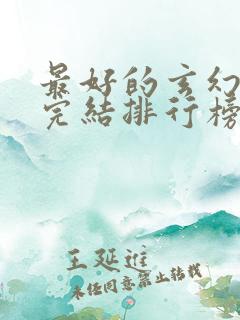 最好的玄幻
完結排行榜
王延進
未经同意禁止转载